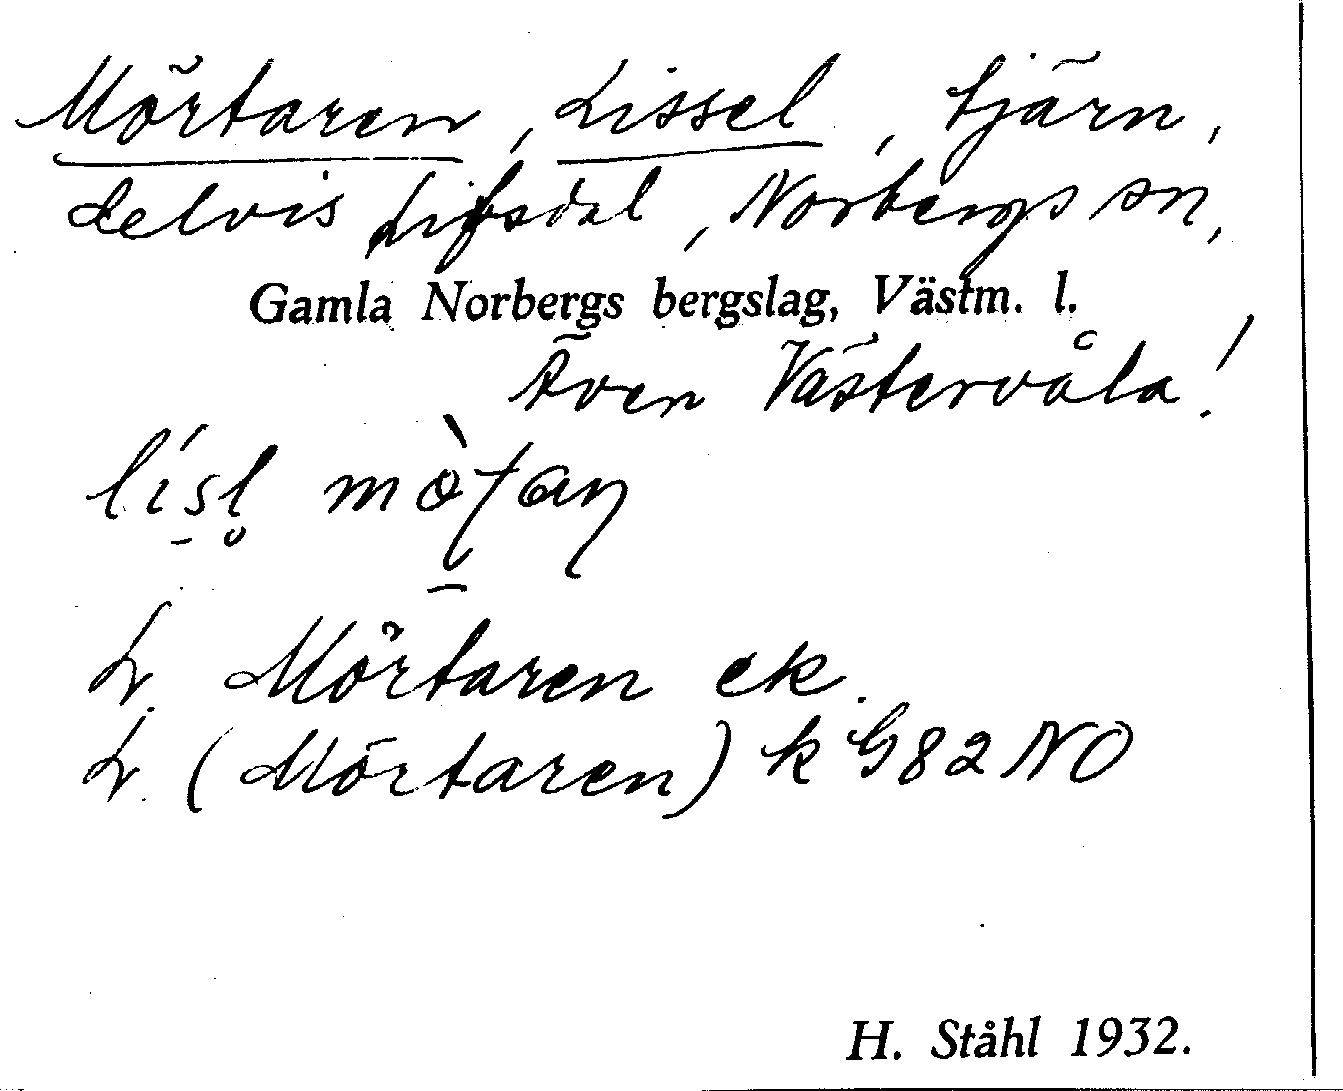 Mörtaren, Lissel, tjärn,
delvis Lifsdal, Norbergs sn,
Gamla Norbergs bergslag, Västm. l.
Även Västervåla!
L. Mörtaren ek.
L. (Mörtaren) k G82NO
H. Ståhl 1932.